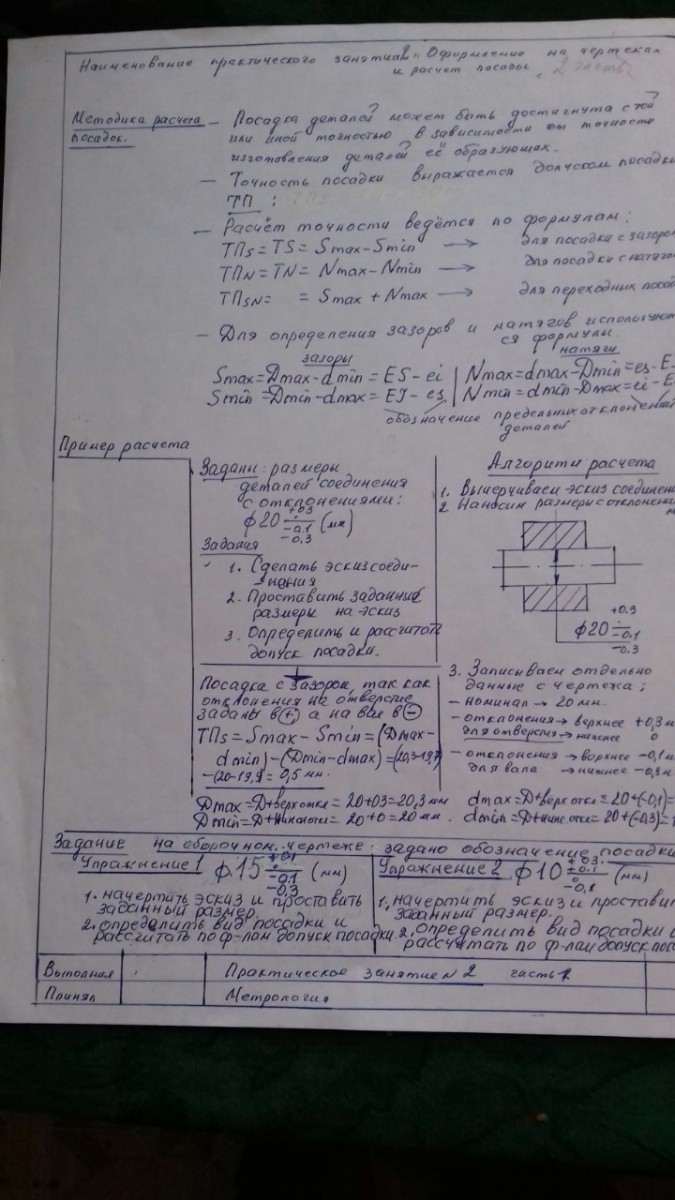 Наименование практического занятия 2: Оформление на чертежах
и расчет посадок. 2 часть
Методика расчета
посадок.
— Посадка деталей может быть достигнута с той
или иной точностью в зависимости от точности
изготовления деталей её образующих.
— Точность посадки выражается допуском посадки
ТП :
— Расчёт точности ведётся по формулам:
ТПs = TS = Smax – Smin → для посадки с зазором
ТПN = TN = Nmax – Nmin → для посадки с натягом
ТПSN = = Smax + Nmax → для переходных посад
— Для определения зазоров и натягов используют
ся формулы.
зазоры
натяги
Smax = Dmax – dmin = ES – ei | Nmax = dmax – Dmin = es – E
Smin = Dmin – dmax = EJ – es | Nmin = dmin – Dmax = ei – E
обозначение предельных отклонений
деталей
Пример расчета
Заданы: размеры
деталей соединения
с отклонениями:
ϕ20 +0,3 / –0,1 –0,3 (мм)
Задания
1. Сделать эскиз соеди-
нения
2. Проставить заданные
размеры на эскиз
3. Определить и рассчитать
допуск посадки.
Алгоритм расчета
1. Вычерчиваем эскиз соединени
2. Наносим размеры с отклонени
ϕ20 +0,3 / –0,1 –0,3
Посадка с зазором, так как
отклонения на отверстие
заданы в (+) а на вал в (–)
ТПs = Smax – Smin = (Dmax –
dmin) – (Dmin – dmax) = (20,3–19,7)
– (20–19,9) = 0,5 мм.
3. Записываем отдельно
данные с чертежа;
— номинал → 20 мм.
— отклонения → верхнее +0,3 м
для отверстия → нижнее 0
— отклонения → верхнее –0,1 м
для вала → нижнее –0,3 м
Dmax = D + верх откл = 20 + 03 = 20,3 мм
Dmin = D + ниж откл = 20 + 0 = 20 мм.
dmax = D + верх откл = 20 + (–0,1) =
dmin = D + ниж. откл = 20 + (–0,3) = 1
Задание на сборочном чертеже задано обозначение посадки
Упражнение 1 ϕ 15 +0,1 / –0,1 –0,3 (мм)
1. начертить эскиз и проставить
заданный размер.
2. определить вид посадки и
рассчитать по ф-лам допуск посадки.
Упражнение 2 ϕ10 +03 +0,1 / 0 –0,1 (мм)
1. начертить эскиз и простави
заданный размер.
2. определить вид посадки и
рассчитать по ф-лам допуск пос
Выполнил
Практическое занятие № 2 часть 1
Принял
Метрология